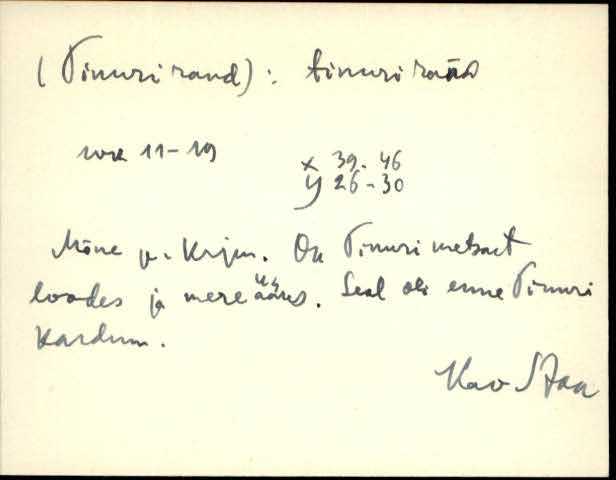 (Timuri rand): timuri rand
11-19
x 39-46
y 26-30
Mõne p. Krjm. On Timuri metsast
loodes ja mere ääres. Seal oli enne Timuri
kardum.